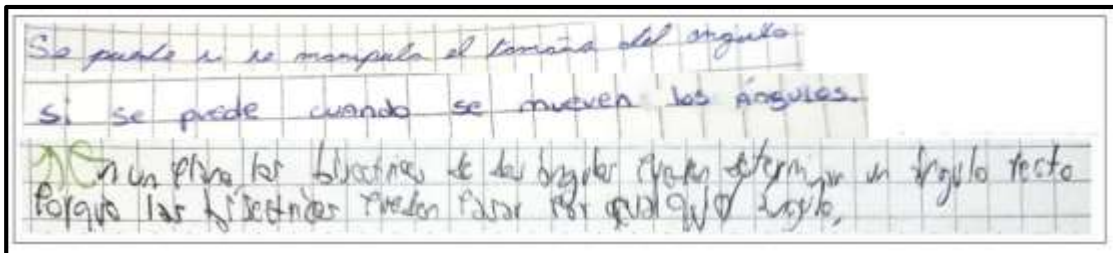 Se puede si se manipula el tamaño del angulo
si se puede cuando se mueven los Ángulos.
En un plano las bisectrices de dos ángulos pueden determinar un ángulo recto
Porque las bisectrices Pueden Pasar Por ángulo.